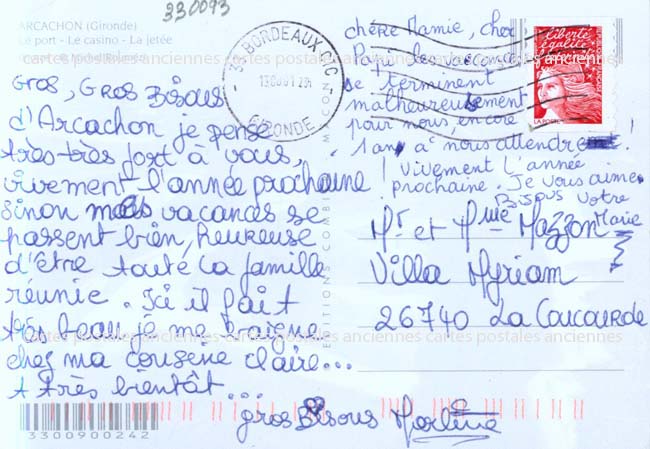 330093
ARCACHON (Gironde)
Le port - Le casino - La jetée
cartes postales anciennes cartes postales anciennes
33 BORDEAUX CTC
GIRONDE
liberté
égalité
LA POSTE
Gros, Gros Bisous
d'Arcachon je pense
très-très fort à vous,
vivement l'année prochaine
Sinon mes vacances se
passent bien, heureuse
d'être toute la famille
réunie. Ici il fait
très beau je me baigne
chez ma cousene Claire...
A très bientôt...
gros Bisous Marlène
chère Mamie, cher
Papi, les vacances
se terminent
malheureusement
pour nous, encore
1 an à nous attendre
! Vivement l'année
prochaine. Je vous aime
Bisous votre
Marie
EDITIONS COMBIER MACON
Mr et Mme Mazzon
Villa Myriam
26740 La Coucourde
cartes postales anciennes cartes postales anciennes
3300900242